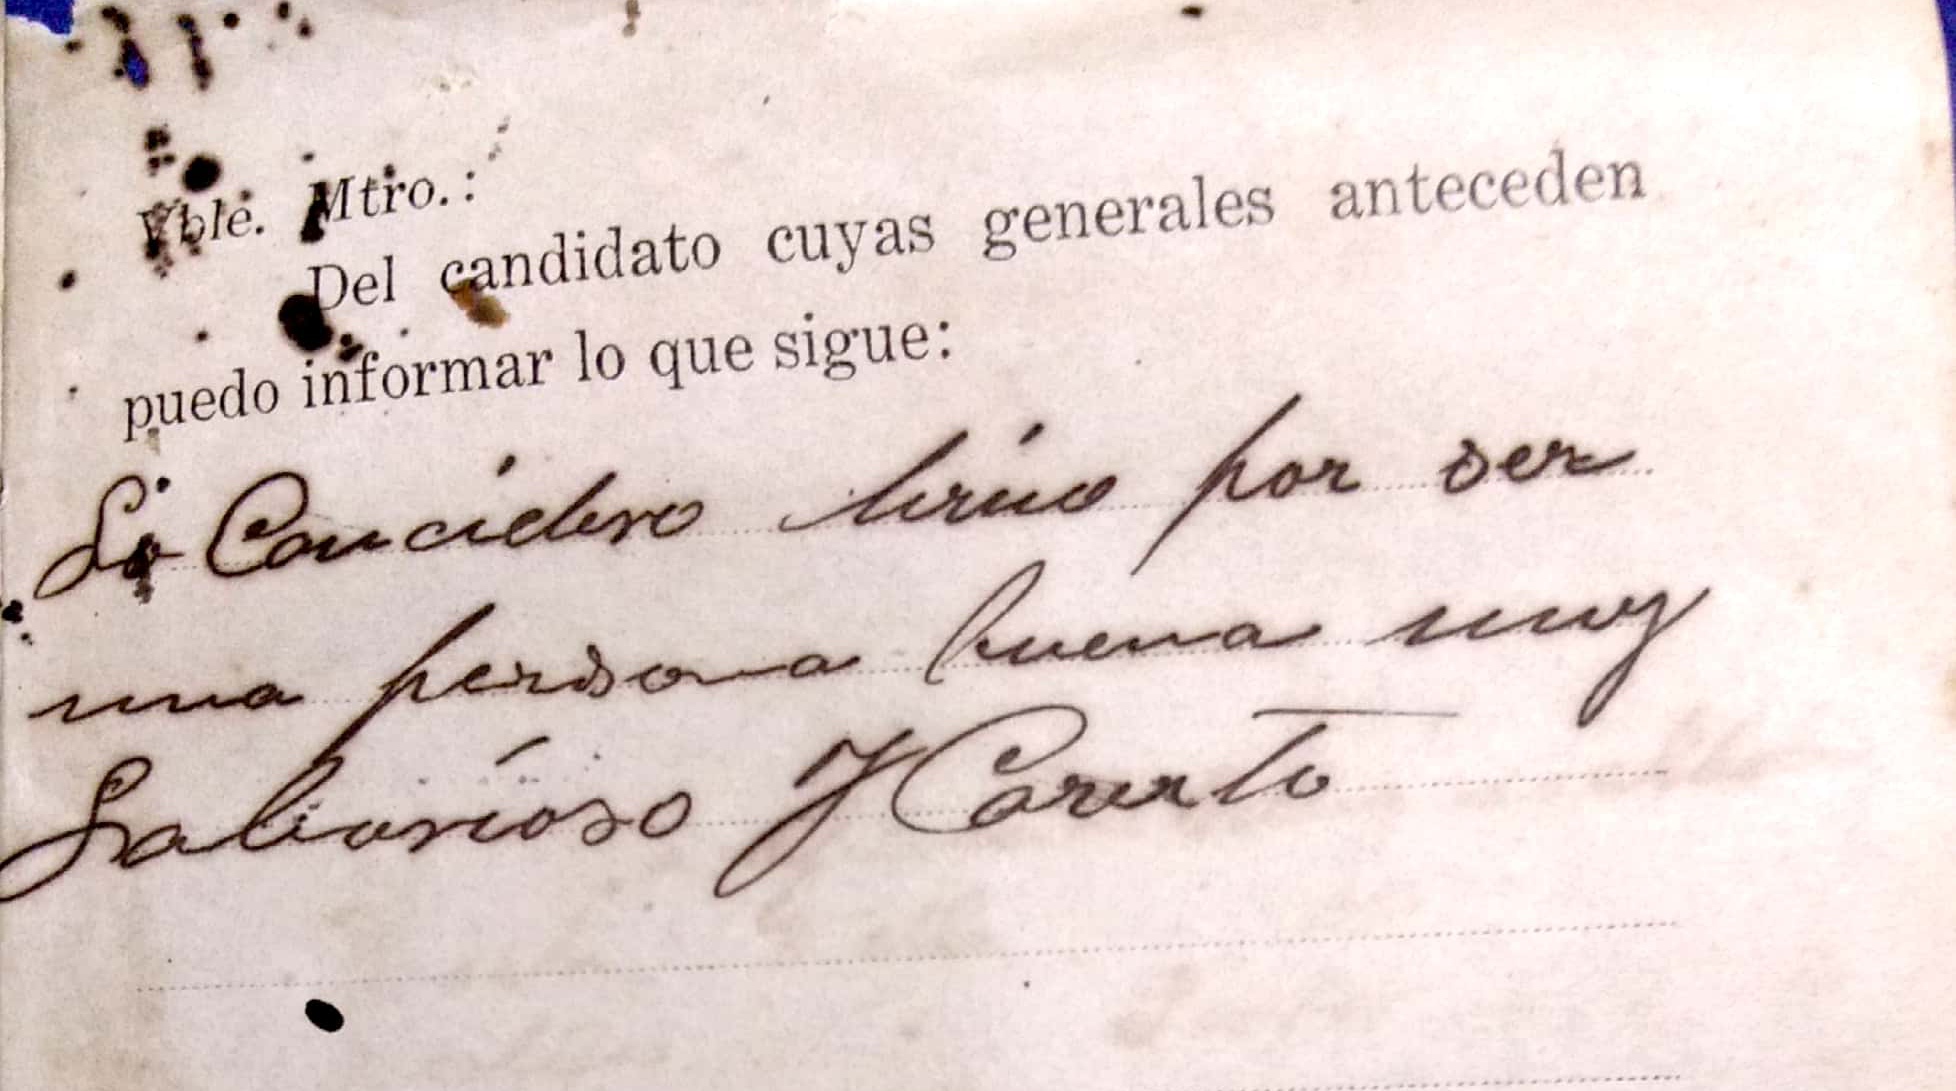 Vble. Mtro.:
Del candidato cuyas generales anteceden
puedo informar lo que sigue:
Lo Concidero por ser
una persona buena muy
Laborioso Y